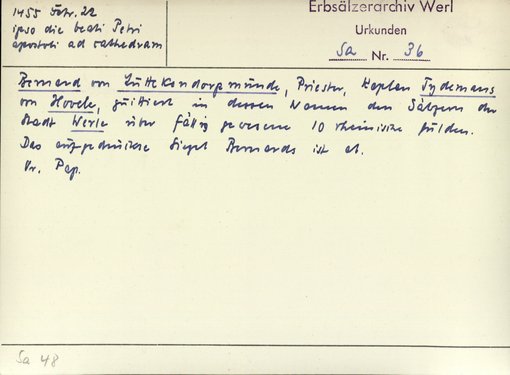 1455 Febr. 22
ipso die beati Petri
apostoli ad cathedram
Erbsälzerarchiv Werl
Urkunden
Sa Nr. 36
Bernard von Luttekendorpmunde, Priester, Kaplan Tydemans
von Hovele, quittiert in dessen Namen den Sälzern der
Stadt Werle über fällig gewesene 10 rheinische Gulden.
Das aufgedrückte Siegel Bernards ist ab.
Or. Pap.
Sa 48